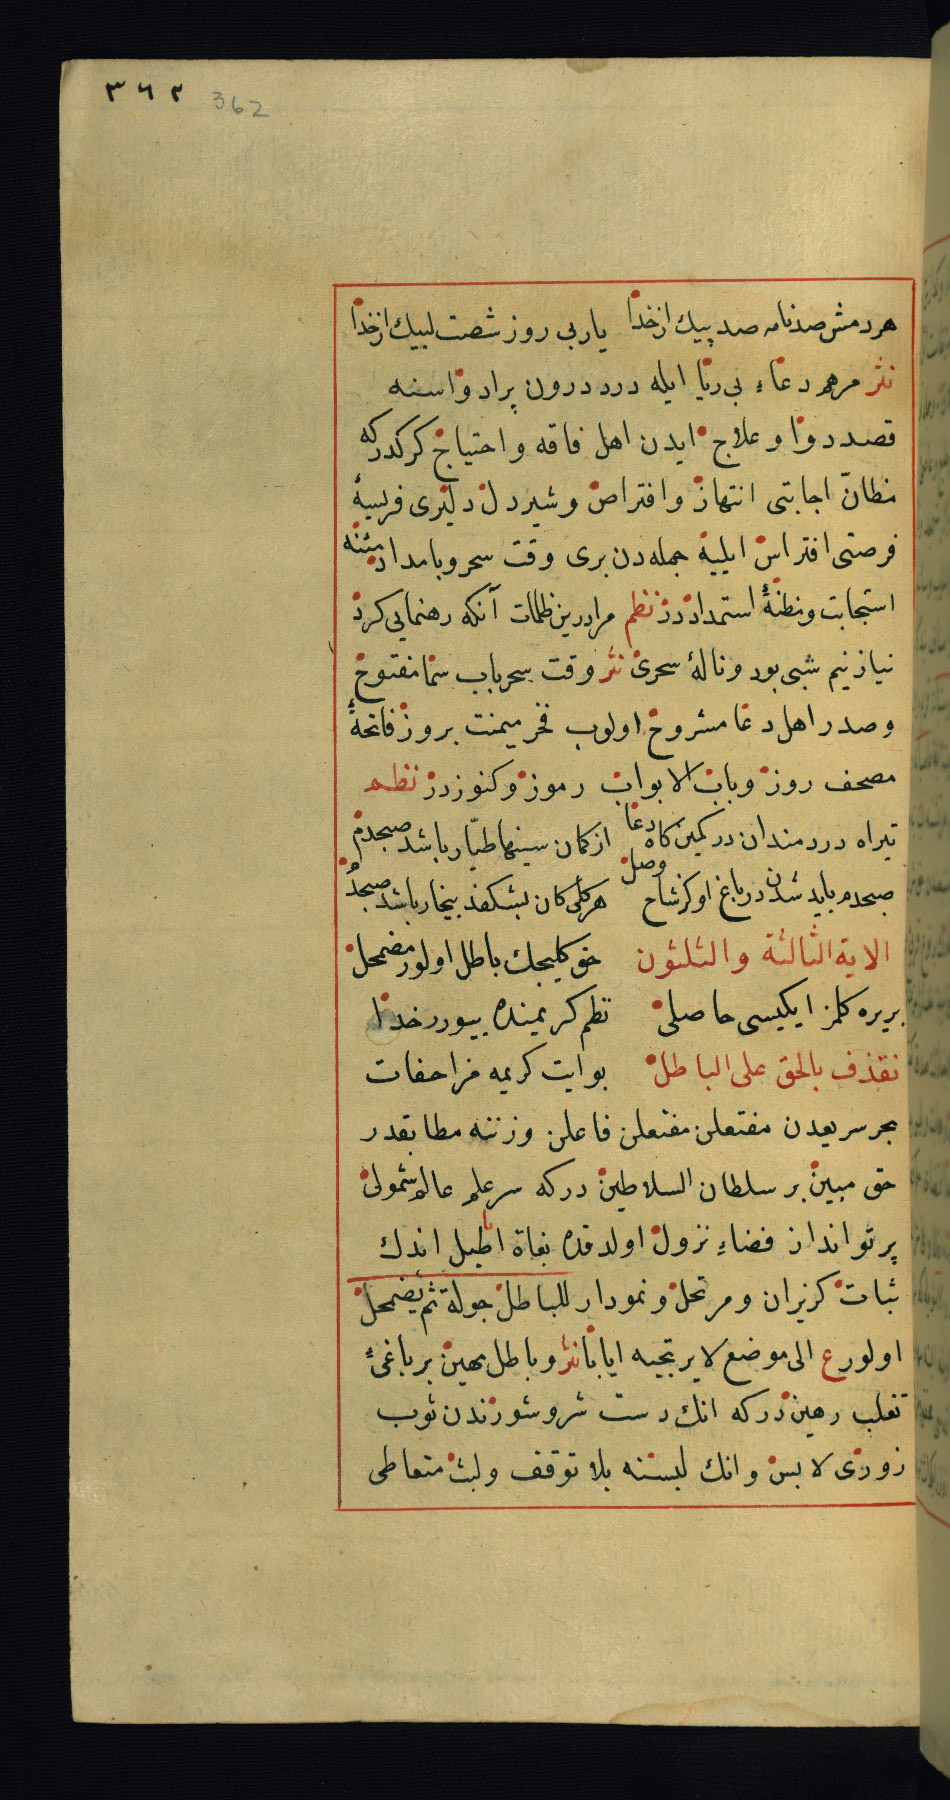 ٣٦٢ 362
هر دمش صد نامه صد پیك از خدا یاربی روز شصت لبیك از خدا
نثر مرهم دعاء بی ریا ایله درد درون پر ادواسنه
قصد دوا و علاج ایدن اهل فاقه و احتیاج کرکدر که
مظانّ اجابتی انتهاز و افتراص و شیر دل دلیری فریسهٔ
فرصتی افتراس ایلیه جمله دن بری وقت سحر و بامداد مئنه
استجابت و مظنهٔ استمداد در نظم مرا درین ظلمات آنکه رهنمایی کرد
نیاز نیم شبی بود و نالهٔ سحری نثر وقت سحر باب سما مفتوح
و صدر اهل دعا مشروح اولوب فخر میمنت بروز فاتحهٔ
مصحف روز و باب الابواب رموز و کنوز در نظم
تیر اه دردمندان در کمین کاه دعا از کمان سینها طیار باشد صبحدم
صبحدم باید شدن در باغ او کز شاخ وصل هر کلی کان بشکفد بیخار باشد صبحدم
الایة الثالثة والثلثون حق کلیجك باطل اولور مضمحل
بریره کلمز ایکیسی حاصلی نظم کریمینده بیورر خدا
نقذف بالحق علی الباطل بو ایت کریمه مزاحفات
بحر سریعدن مفتعلن مفتعلن فاعلن وزننه مطابقدر
حق مبین بر سلطان السلاطین در که سر علم عالم شمولی
پرتو انداز فضاء نزول اولدقده بغاة اباطیل اندك
ثبات کریزان و مرتحل و نمودار للباطل جولة ثم یضمحل
اولور ع الی موضع لا یرتجیه ایابا نثر و باطل مهین بر باغیٔ
تغلب رهین در که انك دست شر و شورندن ثوب
زوری لابس و انك لبسنه بلا توقف و لبث متعاطی